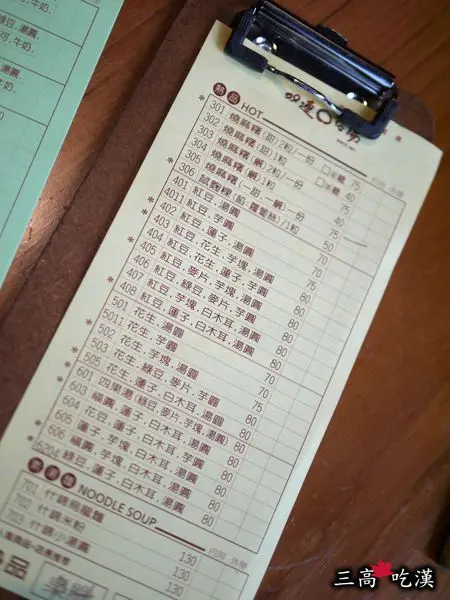 綠豆.湯圓
牛奶.
熱品 HOT 內用 外帶
301 燒麻糬(甜)2粒/一份 □米糖 75
302 燒麻糬(甜)1粒 □米糖 40
303 燒麻糬(鹹)2粒/一份 75
304 燒麻糬(鹹)1粒 40
305 燒麻糬(一甜一鹹)一份 75
306 鼠麴粿(餡:蘿蔔絲)/1粒 50
401 紅豆.湯圓 70
4011 紅豆.芋圓 75
402 紅豆.蓮子.湯圓 70
403 紅豆.花生.芋塊.湯圓
404 紅豆.花生.蓮子.芋圓 80
405 紅豆.麥片.芋塊.湯圓 80
406 紅豆.綠豆.麥片.芋圓 80
407 紅豆.蓮子.白木耳.湯圓 80
408 紅豆.芋塊.白木耳.湯圓 80
501 花生.湯圓
5011 花生.芋圓 70
502 花生.芋塊.湯圓 70
503 花生.綠豆.麥片.芋圓 75
505 花生.蓮子.白木耳.湯圓 80
601 四果湯(綠豆.麥片.芋塊.湯圓) 80
603 福圓.蓮子.白木耳.湯圓 80
604 花豆.蓮子.白木耳.芋圓 80
605 蓮子.芋塊.白木耳.湯圓 80
606 福圓.芋塊.白木耳.芋圓 80
6204 綠豆.蓮子.白木耳.湯圓 80
NOODLE SOUP 內用 外帶
701 什錦烏龍麵 130
702 什錦米粉 130
703 什錦小湯圓 130
品
三高吃漢